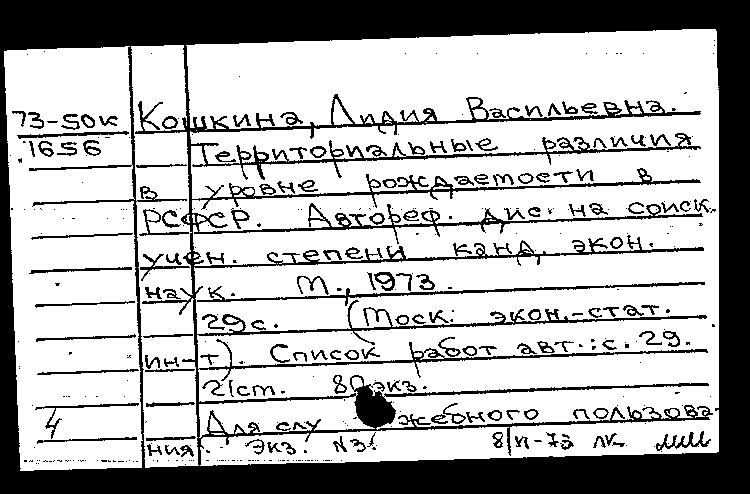 73-50к Кошкина, Лидия Васильевна.
1656 Территориальные различия
в уровне рождаемости в
РСФСР. Автореф. дис. на соиск.
учен. степени канд. экон.
наук. М., 1973.
29с. (Моск. экон.-стат.
ин-т). Список работ авт.: с. 29.
21ст. 80экз.
4 Для служебного пользова-
ния. Экз. №3.